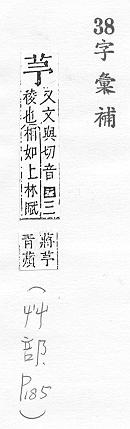 38字彙補
芧
又文與切音三
稜也相如上林賦
蔣芧
青薠
(艸部 P185)